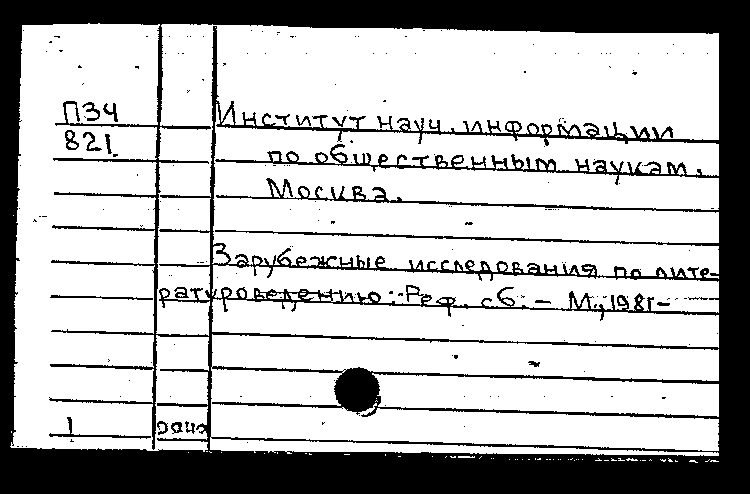 П34
821
Институт науч. информации
по общественным наукам.
Москва.
Зарубежные исследования по лите-
ратуроведению: Реф. сб. – М., 1981–
1